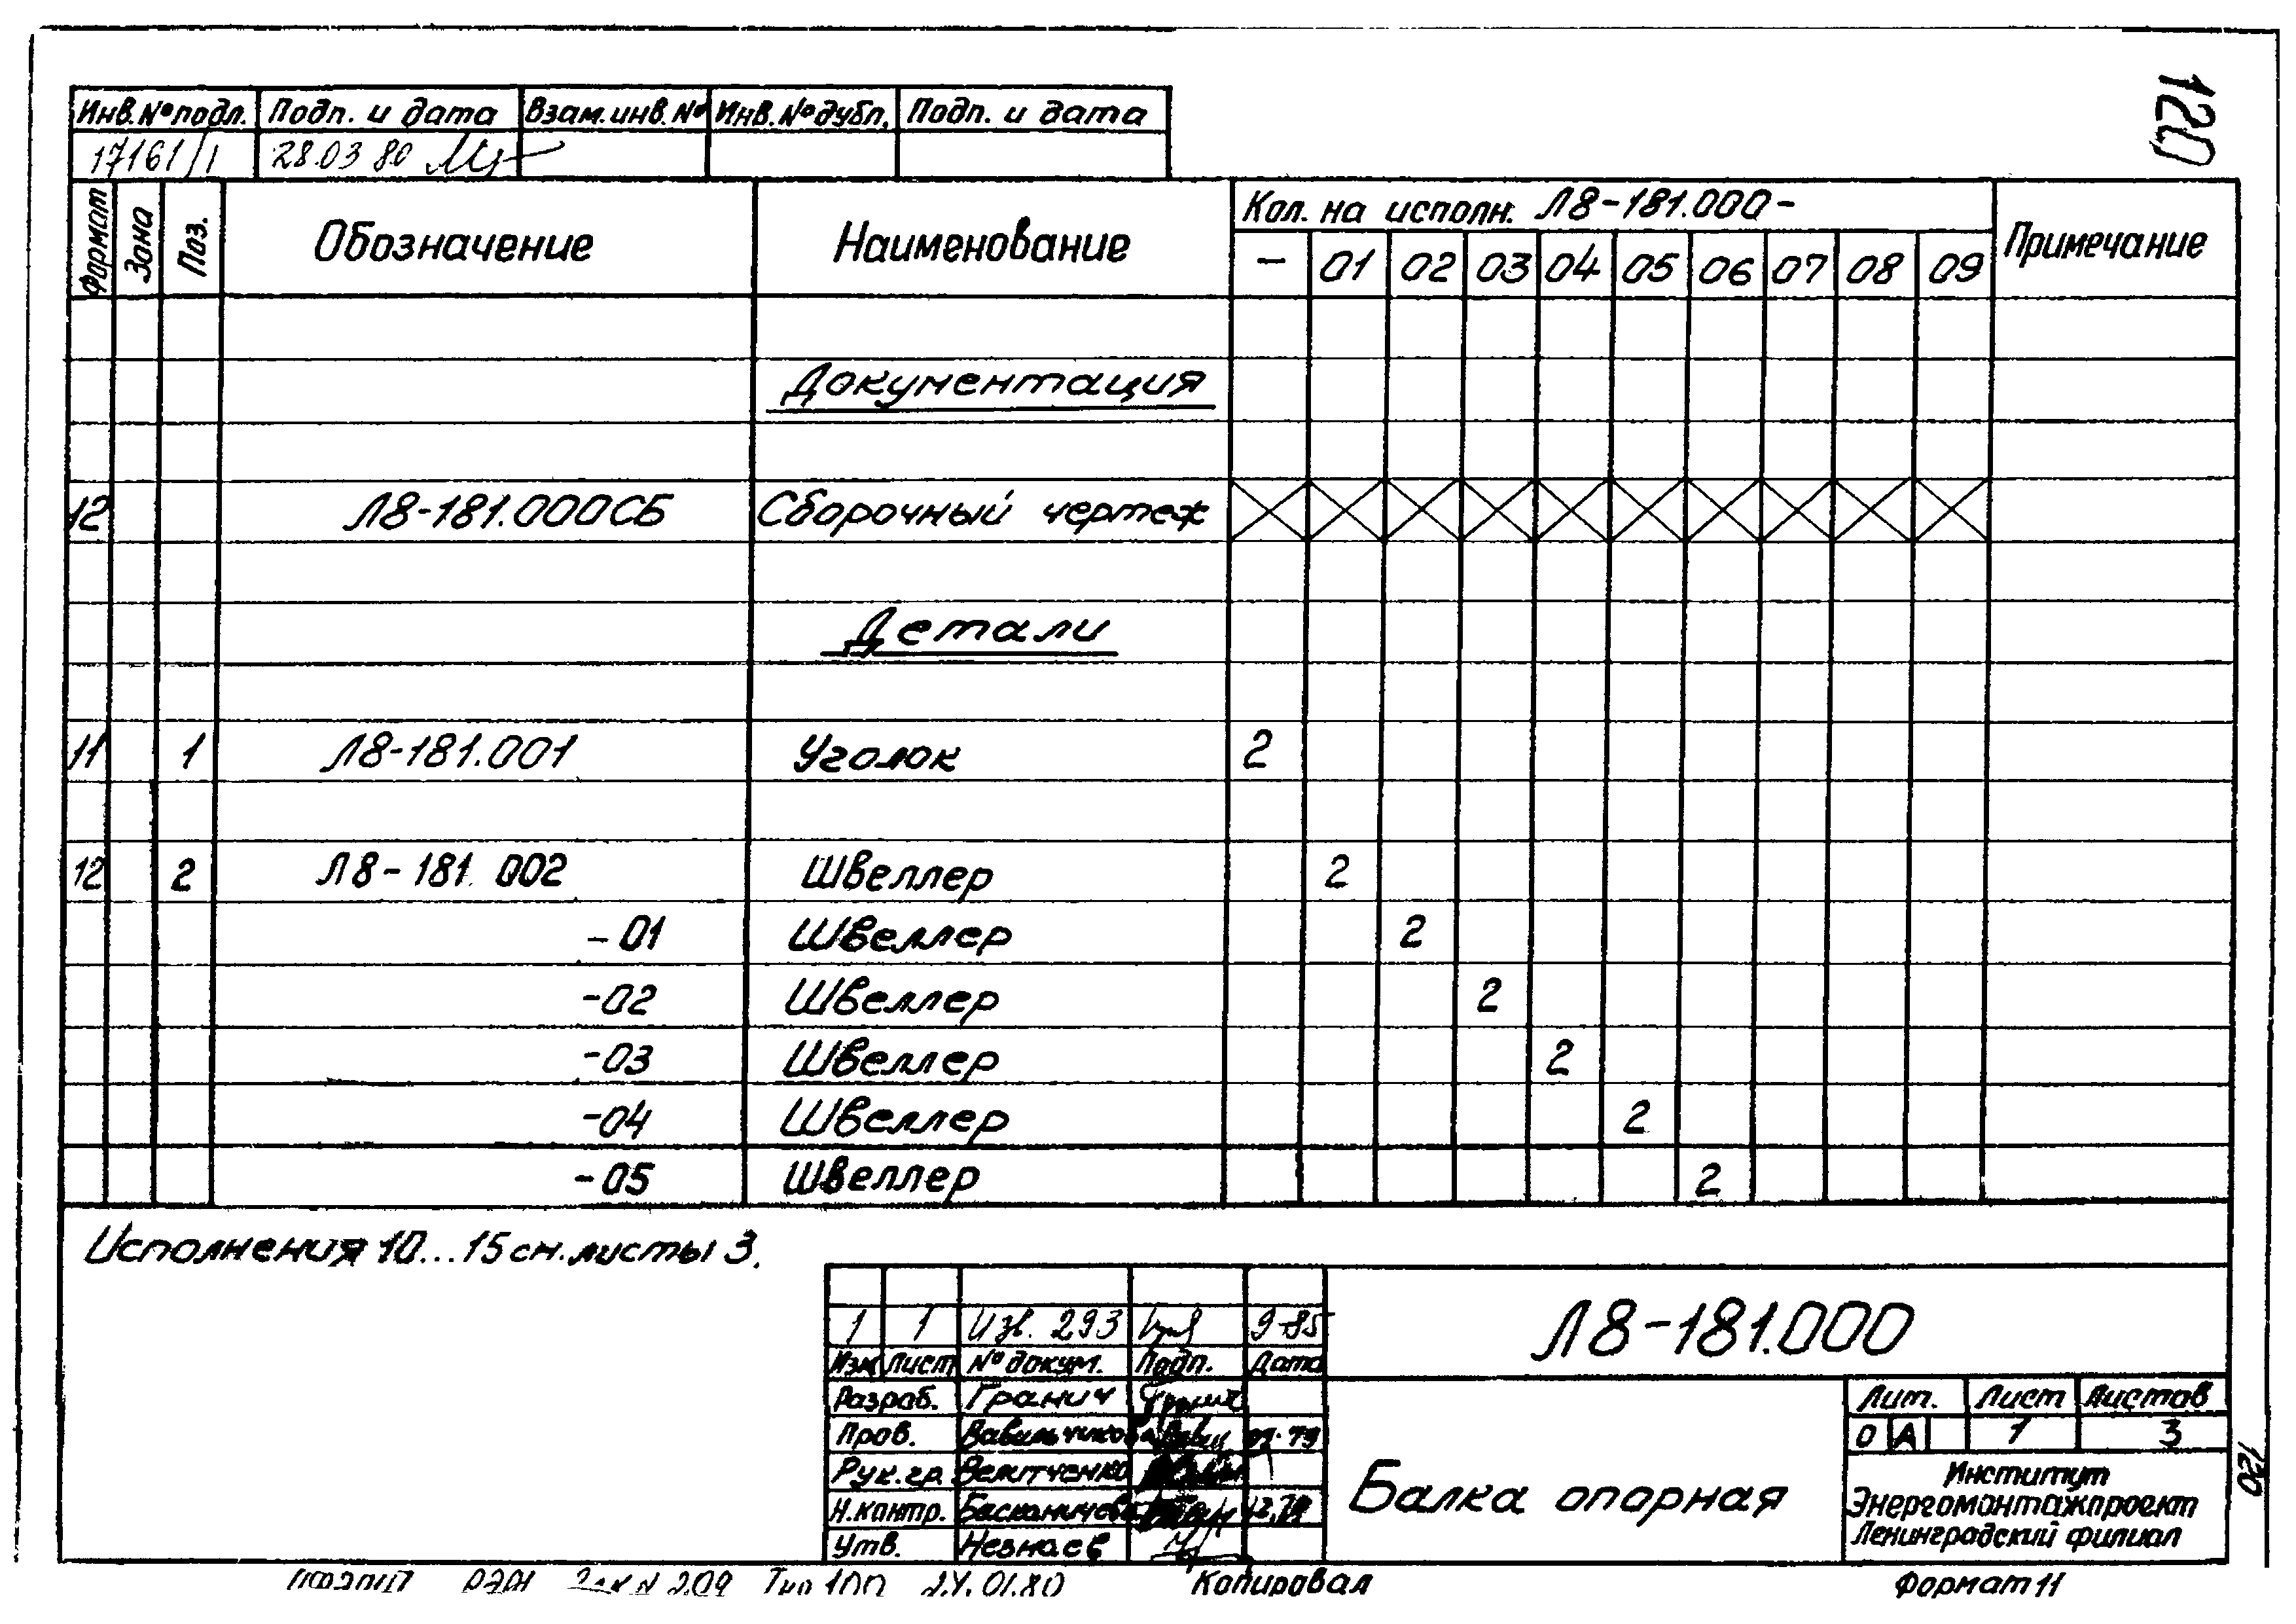 120
Инв.№подл. Подп. и дата Взам.инв.№ Инв.№дубл. Подп. и дата
17161/1 28.03 80
Формат Зона Поз. Обозначение Наименование Кол. на исполн. Л8-181.000- Примечание
- 01 02 03 04 05 06 07 08 09
Документация
12 Л8-181.000СБ Сборочный чертеж
Детали
11 1 Л8-181.001 Уголок 2
12 2 Л8-181.002 Швеллер 2
-01 Швеллер 2
-02 Швеллер 2
-03 Швеллер 2
-04 Швеллер 2
-05 Швеллер 2
Исполнения 10...15 см. листы 3.
1 1 Изв. 293 9-85
Изм Лист № докум. Подп. Дата
Л8-181.000
Разраб. Гранич
Пров. Вавильчикова 07.79
Рук.гр.
Н.контр. 12,79
Утв. Незнаев
Балка опорная
Лит. Лист Листов
О А 1 3
Институт
Энергомонтажпроект
Ленинградский филиал
120
2.09 100 24.01.80 Копировал Формат 11